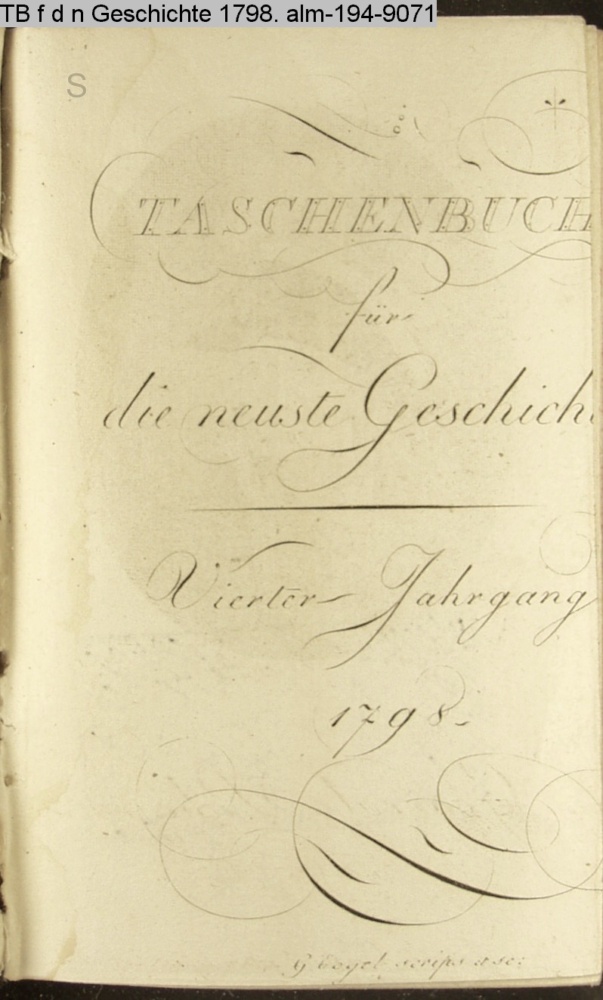 TB f d n Geschichte 1798. alm-194-9071
S
TASCHENBUCH
für
die neuste Geschicht
Vierter Jahrgang
1798.
G Vogel scrips et sc: